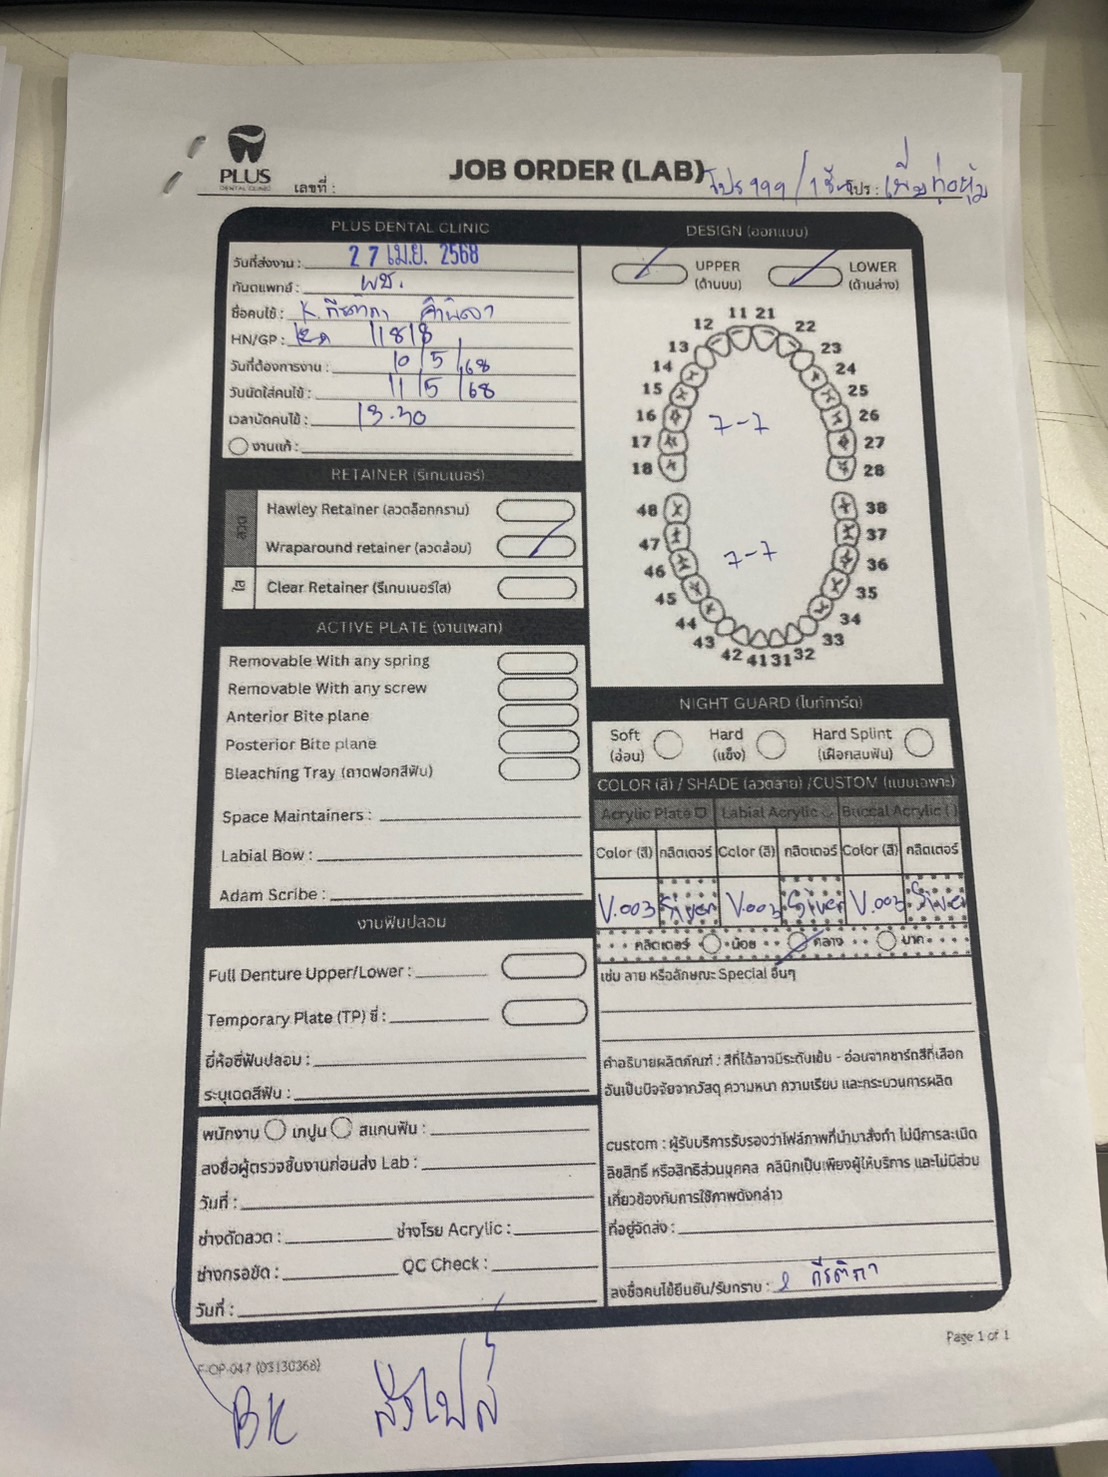 PLUS
DENTAL CLINIC
เลขที่ :
JOB ORDER (LAB)
โปร 999 / 1 ชิ้น โปร : เพิ่มท่อหุ้ม
PLUS DENTAL CLINIC
วันที่ส่งงาน : 27 เม.ย. 2568
ทันตแพทย์ : พช.
ชื่อคนไข้ : K. กีรติกา
HN/GP : 11818
วันที่ต้องการงาน : 10/5/68
วันนัดใส่คนไข้ : 11/5/68
เวลานัดคนไข้ : 13.30
งานแก้ :
RETAINER (รีเทนเนอร์)
ลวด
Hawley Retainer (ลวดล็อกกราม)
Wraparound retainer (ลวดล้อม)
ใส
Clear Retainer (รีเทนเนอร์ใส)
ACTIVE PLATE (งานเพลท)
Removable With any spring
Removable With any screw
Anterior Bite plane
Posterior Bite plane
Bleaching Tray (ถาดฟอกสีฟัน)
Space Maintainers :
Labial Bow :
Adam Scribe :
งานฟันปลอม
Full Denture Upper/Lower :
Temporary Plate (TP) ซี่ :
ยี่ห้อซี่ฟันปลอม :
ระบุเฉดสีฟัน :
พนักงาน เทปูน สแกนฟัน :
ลงชื่อผู้ตรวจชิ้นงานก่อนส่ง Lab :
วันที่ :
ช่างดัดลวด : ช่างโรย Acrylic :
ช่างกรอขัด : QC Check :
วันที่ :
DESIGN (ออกแบบ)
UPPER (ด้านบน)
LOWER (ด้านล่าง)
11 21
12 22
13 23
14 24
15 25
16 26
17 27
18 28
7-7
48 38
47 37
46 36
45 35
44 34
43 33
42 41 31 32
7-7
NIGHT GUARD (ไนท์การ์ด)
Soft (อ่อน)
Hard (แข็ง)
Hard Splint (เฝือกสบฟัน)
COLOR (สี) / SHADE (ลวดลาย) /CUSTOM (แบบเฉพาะ)
Acrylic Plate Labial Acrylic Buccal Acrylic
Color (สี) กลิตเตอร์ Color (สี) กลิตเตอร์ Color (สี) กลิตเตอร์
V.003 Silver V.003 Silver V.003 Silver
กลิตเตอร์ น้อย กลาง มาก
เช่น ลาย หรือลักษณะ Special อื่นๆ
คำอธิบายผลิตภัณฑ์ : สีที่ได้อาจมีระดับเข้ม - อ่อนจากชาร์ทสีที่เลือก
อันเป็นปัจจัยจากวัสดุ ความหนา ความเรียบ และกระบวนการผลิต
custom : ผู้รับบริการรับรองว่าไฟล์ภาพที่นำมาสั่งทำ ไม่มีการละเมิด
ลิขสิทธิ์ หรือสิทธิส่วนบุคคล คลินิกเป็นเพียงผู้ให้บริการ และไม่มีส่วน
เกี่ยวข้องกับการใช้ภาพดังกล่าว
ที่อยู่จัดส่ง :
ลงชื่อคนไข้ยืนยัน/รับทราบ : กีรติกา
F-OP-047 (03130368)
Page 1 of 1
BK ส่งไฟล์